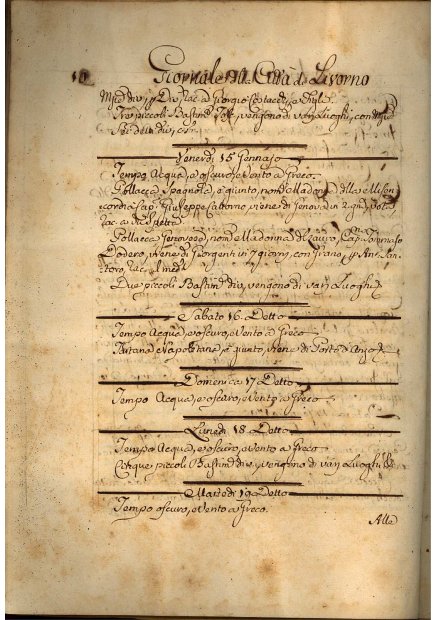 10 Giornale Città di Livorno
div.
Tre piccoli Bastim. vengono di varj Luoghi, con
Venerdì 15 Gennajo
Tempo Acqua, e oscuro, e Vento a Greco.
Pollacca Spagnola, è giunto, nom. Madonna della Miseri
cordia Cap. Giuseppe viene di Genova in 2 giorni,
Pollacca Genovese, nom. Madonna del Lauro, Cap. Tommaso
Dodero, viene di Gorgenti in 7 giorni, con Grano, p. Ant. San
toro,
Due piccoli Bastim. div. vengono di varj Luoghi
Sabato 16. Detto
Tempo Acqua, e oscuro, e Vento a Greco
Tartana Napoletana, è giunto, viene di Porto d'Anzo
Domenica 17 Detto
Tempo Acqua, e oscuro, e Vento a Greco
Lunedì 18. Detto
Tempo Acqua, e oscuro, e Vento a Greco
Cinque piccoli Bastim. div. vengono di varj Luoghi
Martedì 19. Detto
Tempo oscuro, e Vento a Greco.
Alla